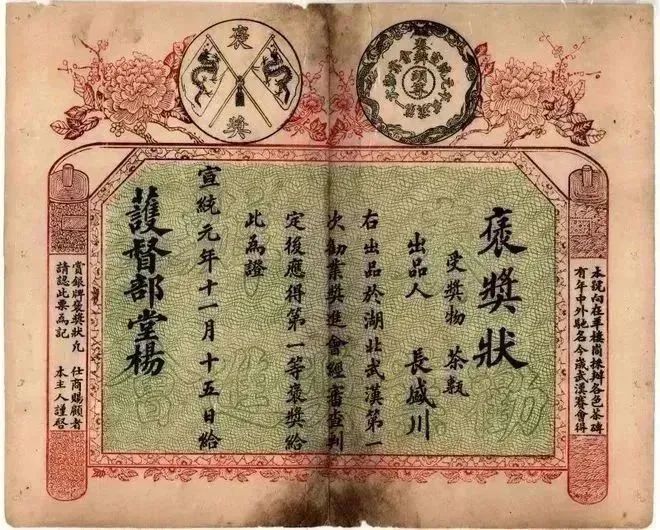 褒獎
本號向在羊樓峝採辦各色茶磚
有年中外馳名今歲武漢賽會得
褒獎狀
受獎物 茶類
出品人 長盛川
右出品於湖北武漢第一
次勸業獎進會經審查判
定後應得第一等褒獎給
此為證
宣統元年十一月十五日給
護督部堂楊
賞銀牌褒獎狀凡 仕商賜顧者
請認此票為記 本主人謹啓